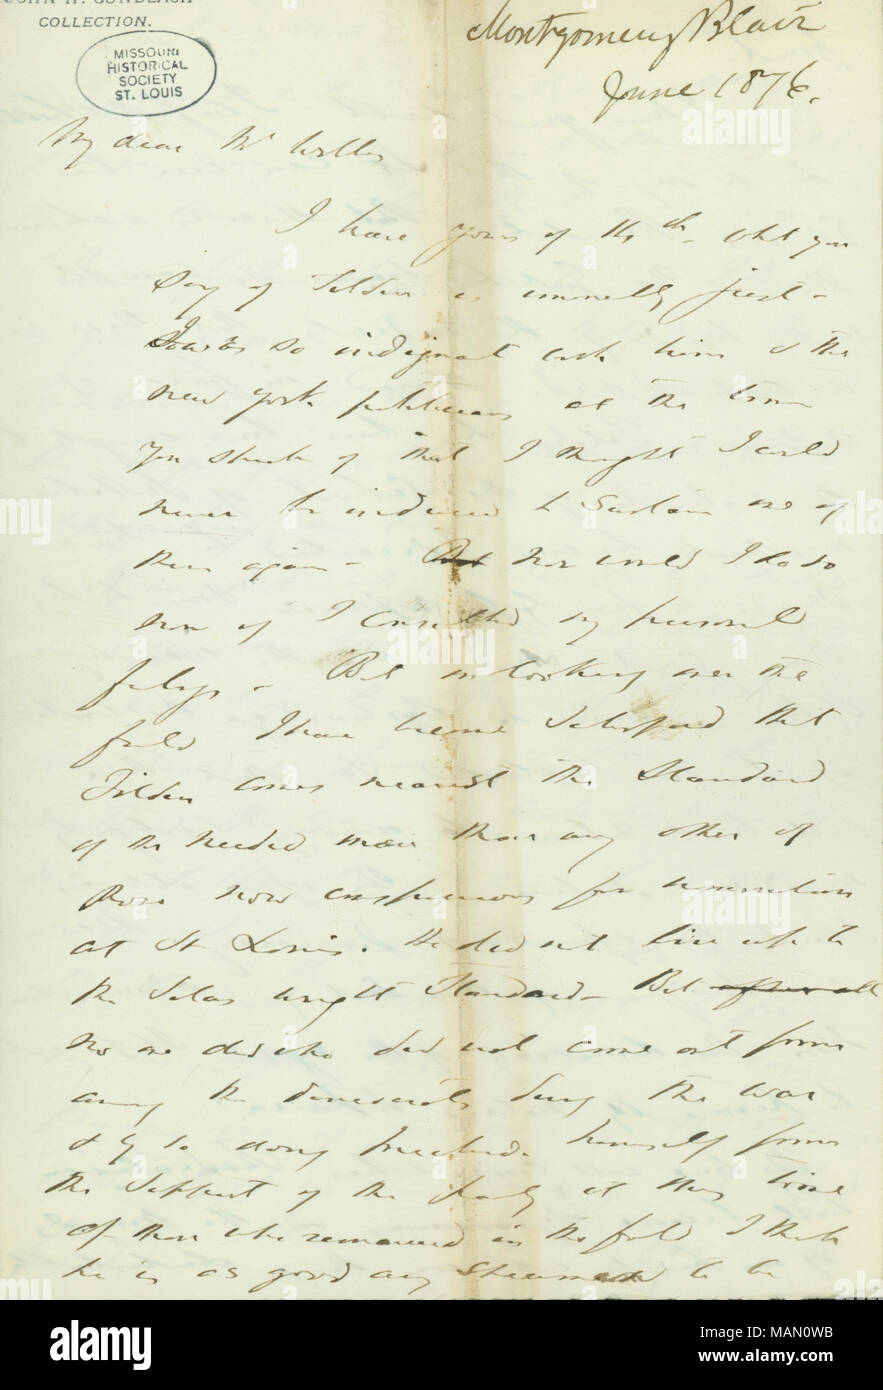 JOHN H. GUNDLACH
COLLECTION.
MISSOURI
HISTORICAL
SOCIETY
ST. LOUIS
Montgomery Blair
June 1876.
My dear Mr Welles
I have yours of the th. What you
say of Tilden is just -
so indignant with him & the
New York politicians at the time
you speak of that I thought I could
never be induced to sustain one of
them again - But nor would I do so
now if I consulted my personal
feelings - But in looking over the
field I have become satisfied that
Tilden comes nearest the Standard
of the needed man than any other of
those now conspicuous for nomination
at St Louis. He did not live up to
the Silas Wright Standard - But after all
no one did who did not come out from
among the democrats during the war
& by so doing preclude himself from
the support of the party at this time
Of those who remained in the fold I think
he is as good any to be
alamy
Image ID: MAN0WB
www.alamy.com